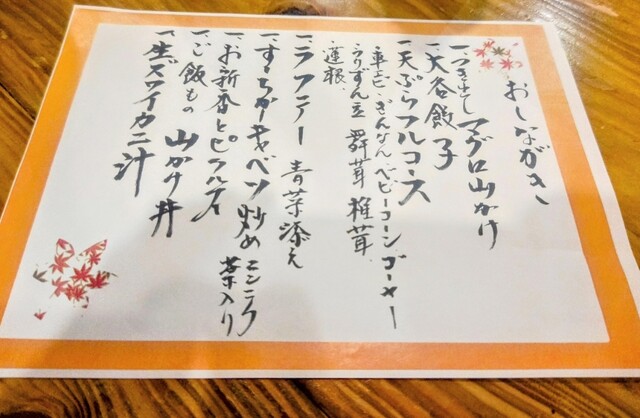 おしながき
一、つき出し マグロ山かけ
一、大名餃子
一、天ぷらフルコース
車えび、ぎんなん、ベビーコーン、ゴーヤー
うりずん豆 舞茸 椎茸
蓮根
一、ラフテー 青菜添え
一、すくがらすキャベツ炒め ニンニク
葉入り
一、お新香とピクルス
一、ご飯もの 山かけ丼
一、生ズワイカニ汁